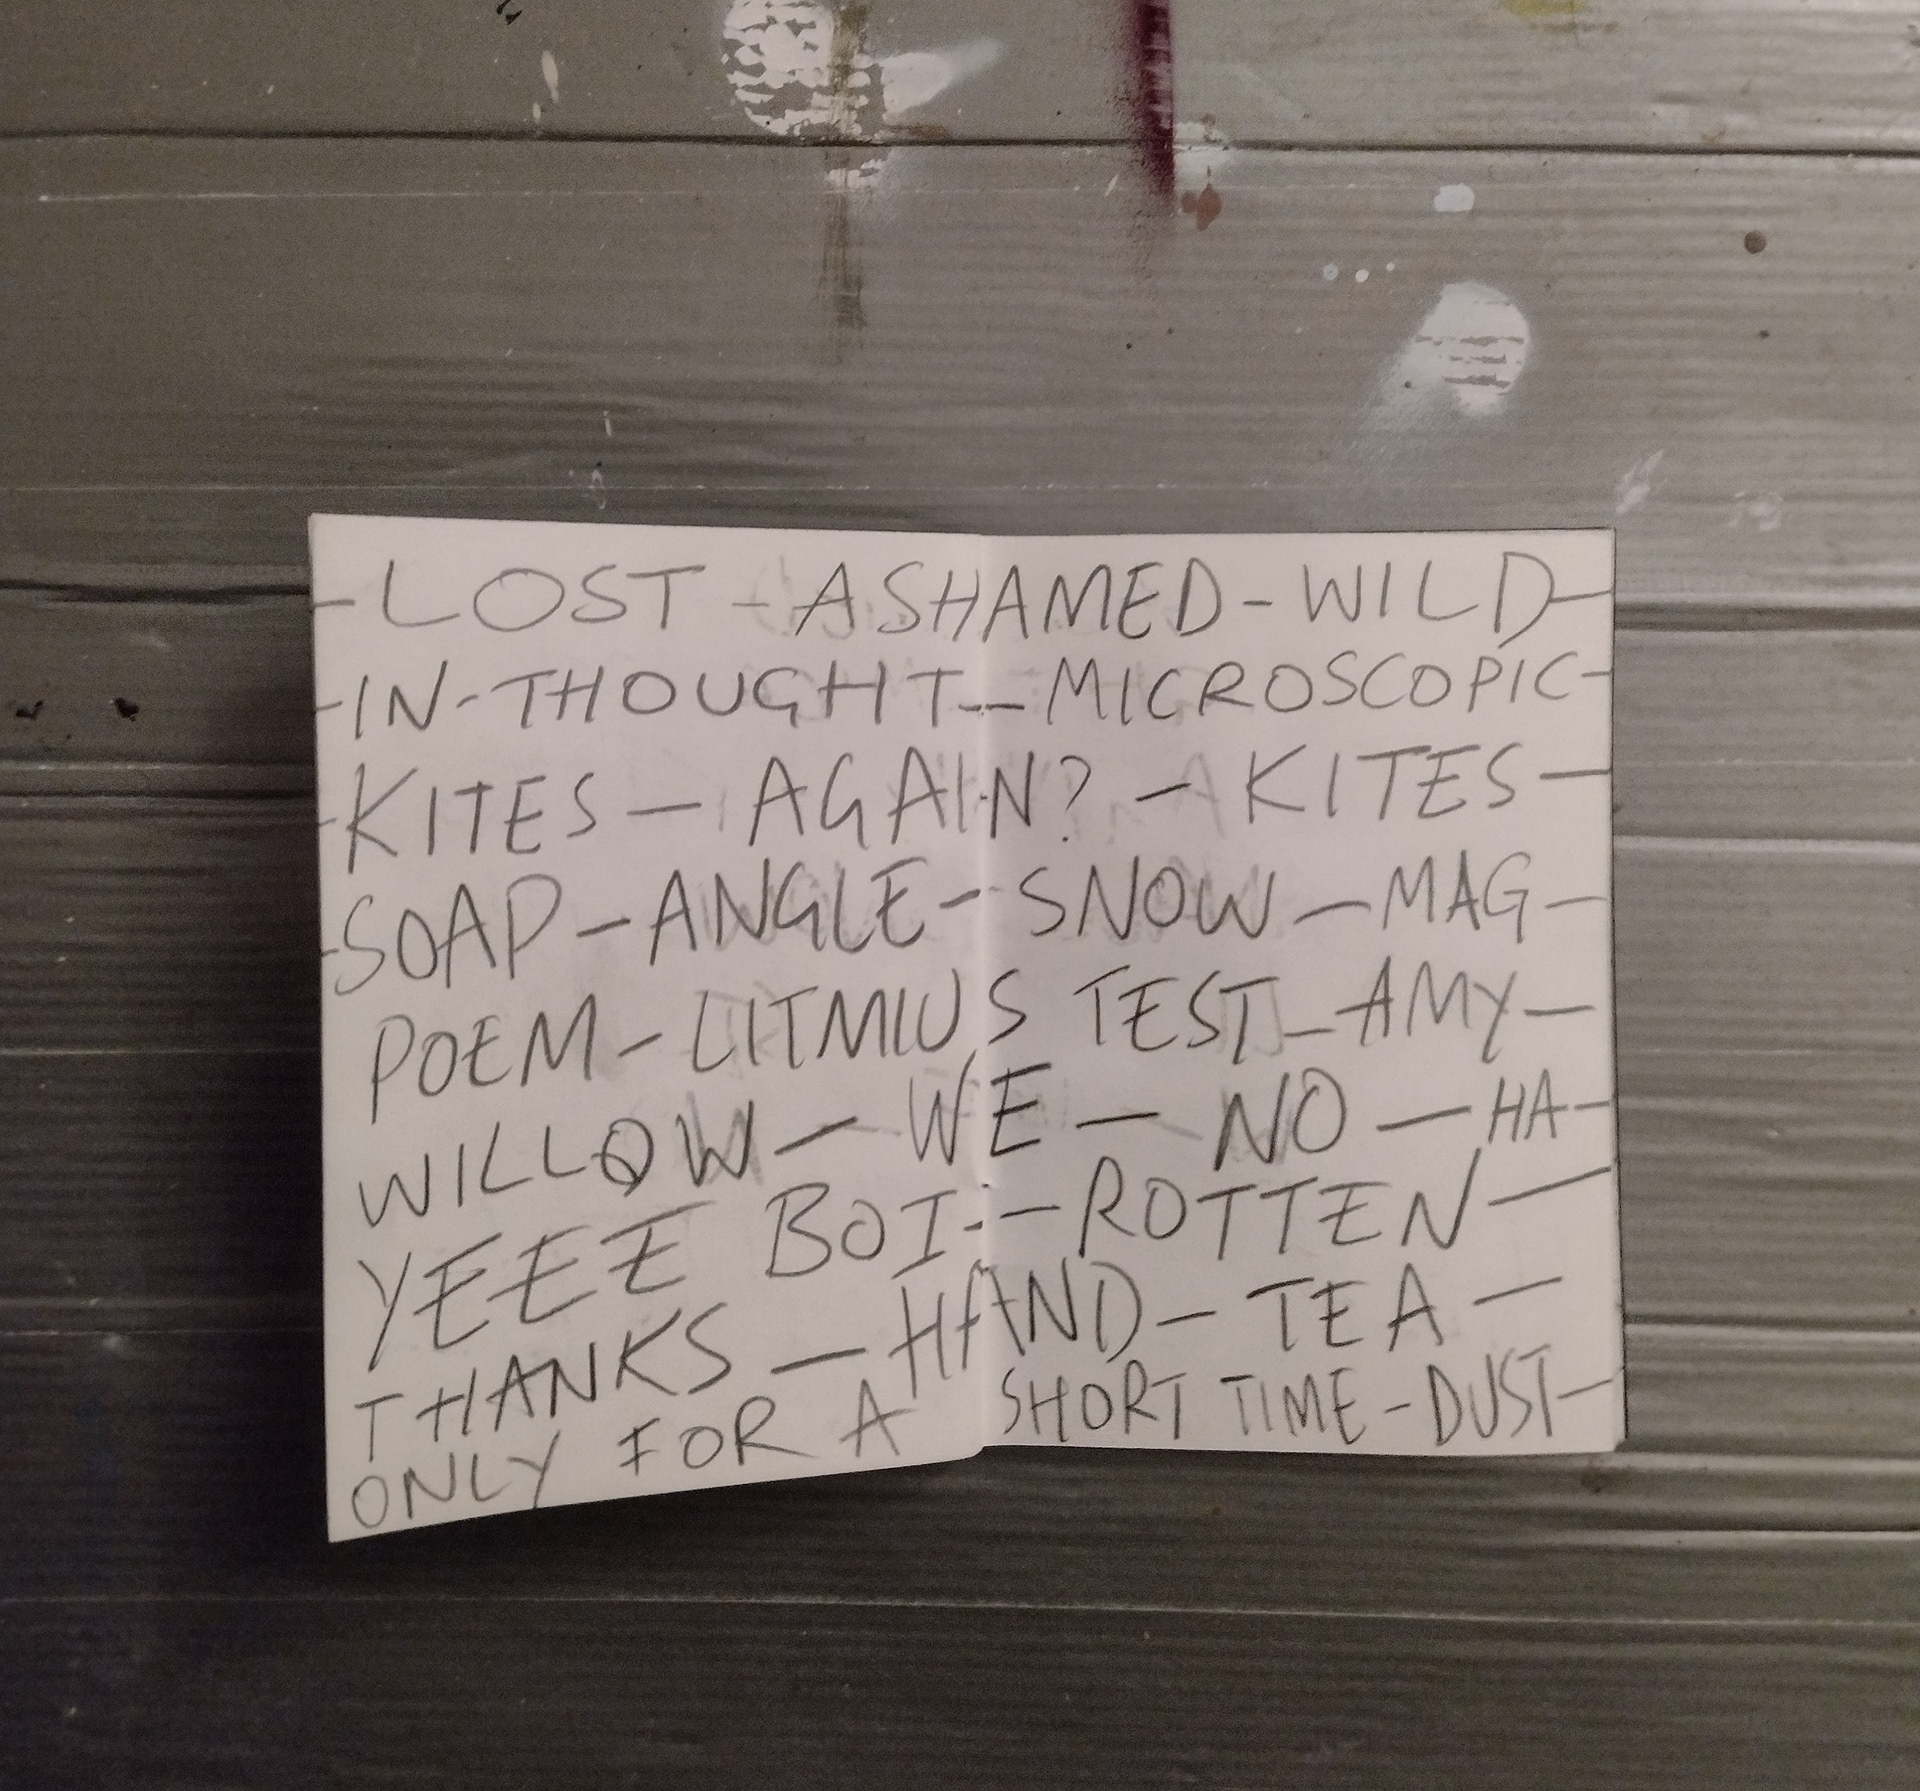 - LOST - ASHAMED - WILD -
- IN - THOUGHT - MICROSCOPIC -
- KITES - AGAIN? - KITES -
- SOAP - ANGLE - SNOW - MAG -
POEM - LITMIUS TEST - AMY -
WILLOW - WE - NO - HA -
YEEE BOI - ROTTEN -
THANKS - HAND - TEA -
ONLY FOR A SHORT TIME - DUST -